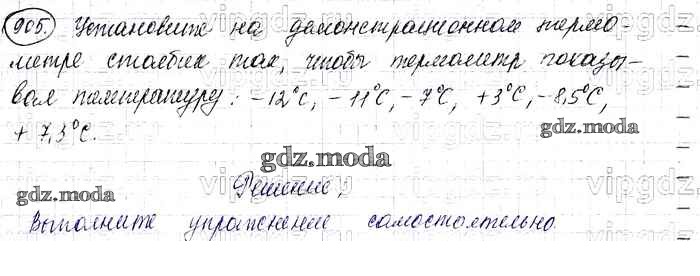 905. Установите на демонстрационном термо-
метре столбик так, чтобы термометр показы-
вал температуру: -12°С, -11°С, -7°С, +3°С, -8,5°С,
+7,3°С.
gdz.moda
gdz.moda
gdz.moda
Решение,
Выполните упражнение самостоятельно.
vipgdz.ru